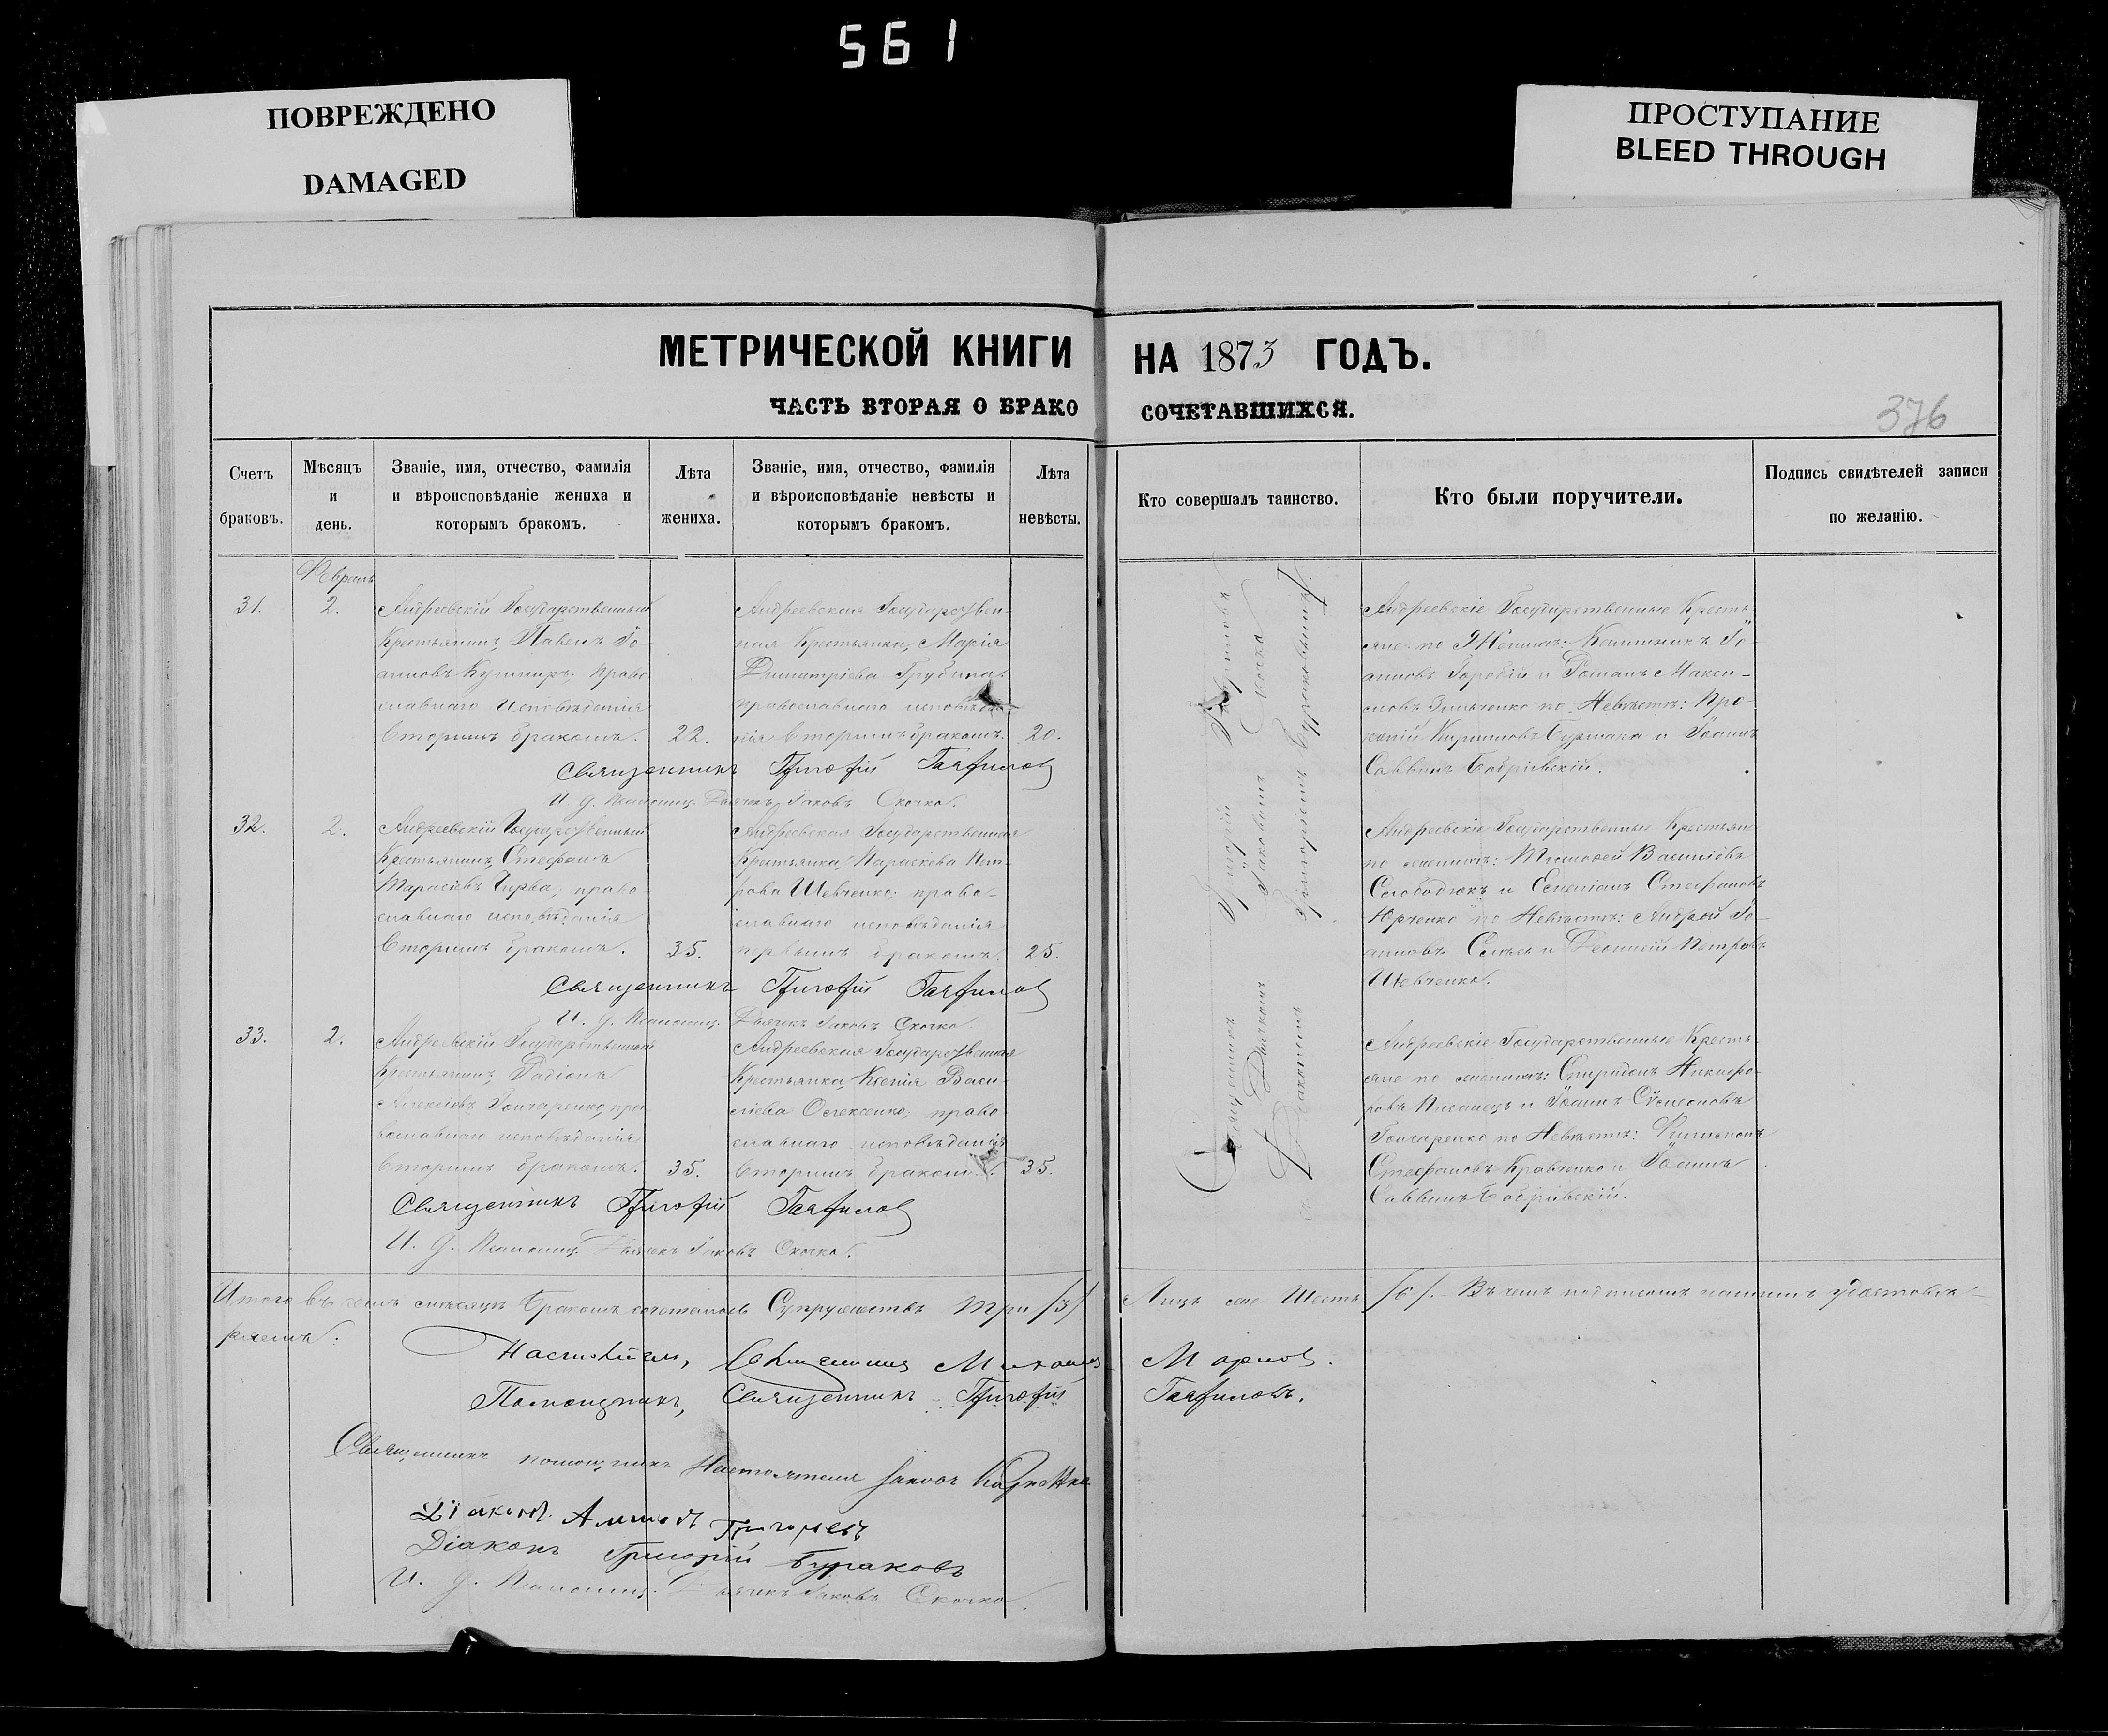 561
ПОВРЕЖДЕНО
DAMAGED
ПРОСТУПАНИЕ
BLEED THROUGH
МЕТРИЧЕСКОЙ КНИГИ НА 1873 ГОДЪ.
ЧАСТЬ ВТОРАЯ О БРАКОСОЧЕТАВШИХСЯ.
376
Счетъ
браковъ.
Мѣсяцъ
и
день.
Званіе, имя, отчество, фамилія
и вѣроисповѣданіе жениха и
которымъ бракомъ.
Лѣта
жениха.
Званіе, имя, отчество, фамилія
и вѣроисповѣданіе невѣсты и
которымъ бракомъ.
Лѣта
невѣсты.
Кто совершалъ таинство.
Кто были поручители.
Подпись свидѣтелей записи
по желанію.
Февраль
31.
2.
Андреевскій Государственный
Крестьянинъ, Павелъ Іо-
анновъ Кушниръ, право
славнаго исповѣданія
Вторымъ бракомъ.
22.
Андреевская Государствен-
ная Крестьянка, Марія
Димитріева
православнаго исповѣда
нія Вторымъ бракомъ.
20.
Андреевскіе Государственные Кресть
яне по Жениху: Іо-
анновъ и Романъ Макси-
мовъ по Невѣстѣ: Про-
и Іоаннъ
Саввинъ
Священникъ Григорій Гаврилов
И. д. Псаломщ. Дьячекъ Іаковъ Скочко.
32.
2.
Андреевскій Государственный
Крестьянинъ, Стефанъ
Тарасіевъ Чирва, право
славнаго исповѣданія
Вторымъ бракомъ.
35.
Андреевская Государственная
Крестьянка, Параскева Пет-
рова Шевченко, право-
славнаго исповѣданія
первымъ бракомъ.
25.
Андреевскіе Государственные Крестьяне
по женихѣ: Тимофей Василіевъ
Слободюкъ и Стефановъ
Юрченко по Невѣстѣ: Андрей Іо-
анновъ и Петровъ
Шевченко.
Священникъ Григорій Гаврилов
И. д. Псаломщ. Дьячекъ Іаковъ Скочко
33.
2.
Андреевскій Государственный
Крестьянинъ, Родіонъ
Алексіевъ Гончаренко, пра
вославнаго исповѣданія
Вторымъ бракомъ.
35.
Андреевская Государственная
Крестьянка, Ксенія Васи-
ліева Олексенко, право
славнаго исповѣданія
Вторымъ бракомъ.
35.
Андреевскіе Государственные Кресть-
яне по женихѣ: Спиридонъ Никифо-
ровъ Писанецъ и Іоаннъ Сѵмеоновъ
Гончаренко по Невѣстѣ: Филимонъ
Стефановъ Кравченко и Іоаннъ
Саввинъ
Священникъ Григорій Гаврилов
И. д. Псаломщ. Дьячекъ Іаковъ Скочко.
Священникъ Григорій Гавриловъ
Дьячкомъ Іаковомъ Скочко
съ Діакономъ Григоріемъ Бураковымъ.
Итого въ семъ мѣсяцѣ бракомъ сочеталось Супружествъ три /3/ Лицъ же Шесть /6/. Въ чемъ подписомъ нашимъ удостовѣ-
ряемъ.
Настоятель, Священникъ Михаилъ
Помощникъ, Священникъ Григорій Гавриловъ.
Священникъ помощникъ Настоятеля Іаковъ
Діаконъ Григорьевъ
Діаконъ Григорій Бураковъ
И. д. Псаломщ. Дьячекъ Іаковъ Скочко.